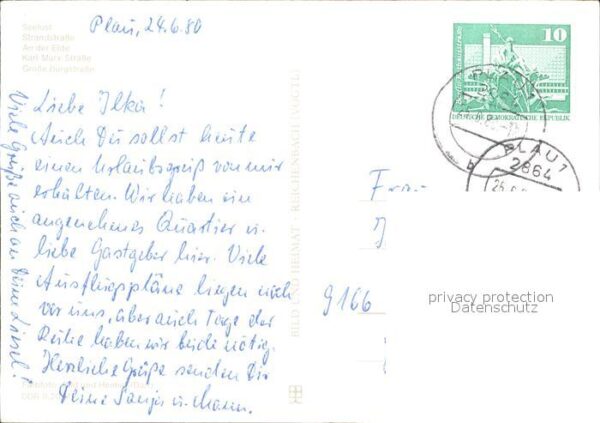 Plau, 24.6.80
Seelust
Strandstraße
An der Elde
Karl-Marx-Straße
Große Burgstraße
Liebe Ilka!
Auch Du sollst heute
einen Urlaubsgruß von mir
erhalten. Wir haben ein
angenehmes Quartier u.
liebe Gastgeber hier. Viele
Ausflugspläne liegen noch
vor uns, aber auch Tage der
Ruhe haben wir beide nötig.
Herzliche Grüße senden Dir
Deine Sanja u. Mann.
Viele Grüße auch an Deine Liesel!
BILD UND HEIMAT REICHENBACH (VOGTL)
10
DEUTSCHE DEMOKRATISCHE REPUBLIK
PLAU 1
2864
Frau
9166
privacy protection
Datenschutz